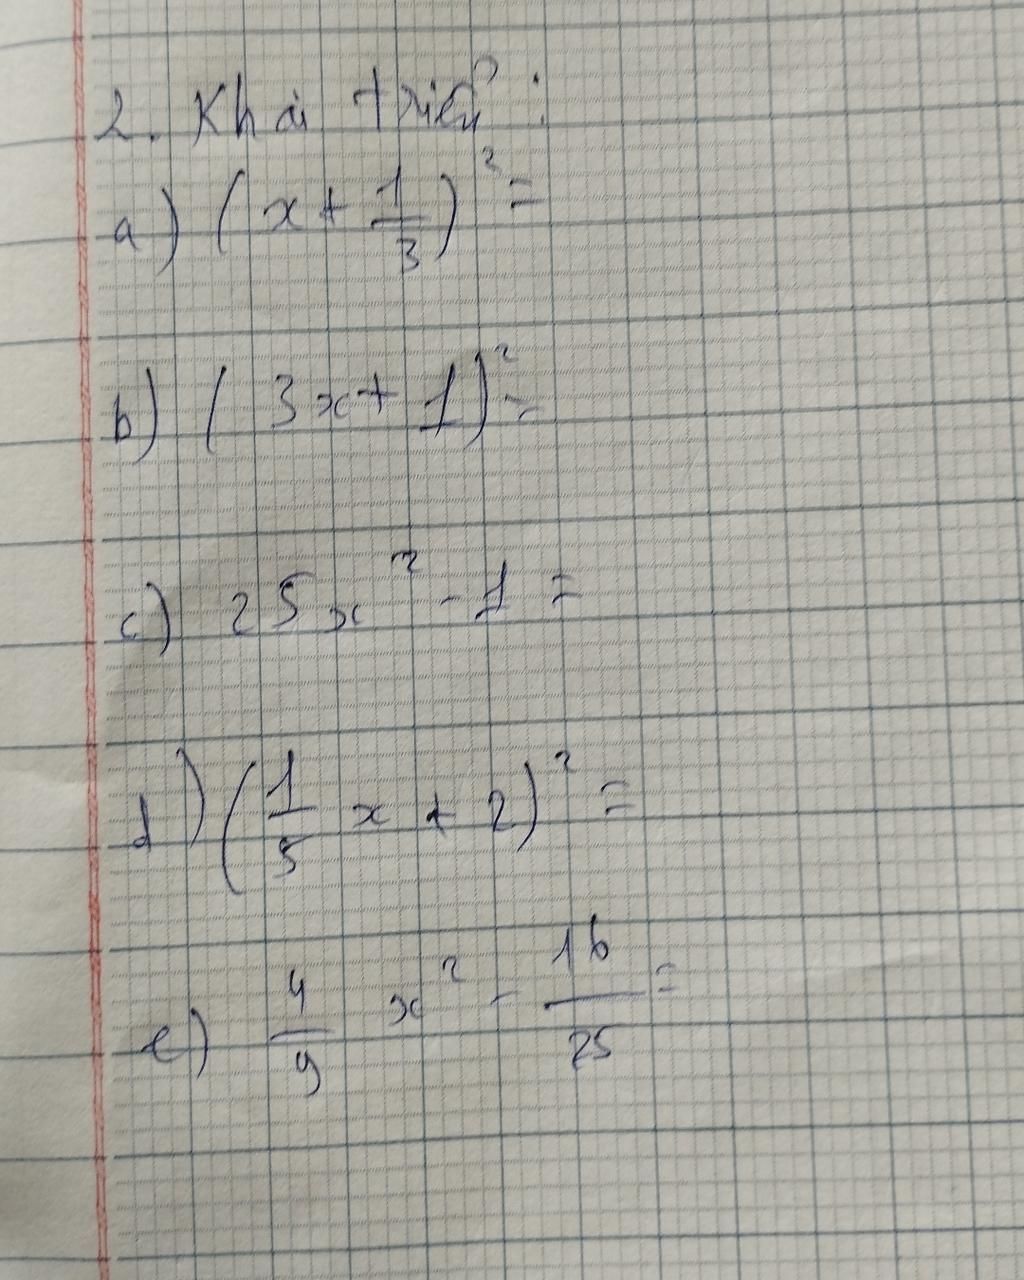 2. Khai triển :
a) ( x + 1/3 )² =
b) ( 3x + 1 )² =
c) 25x² - 1 =
d) ( 1/5 x + 2 )² =
e) 4/9 x² - 16/25 =